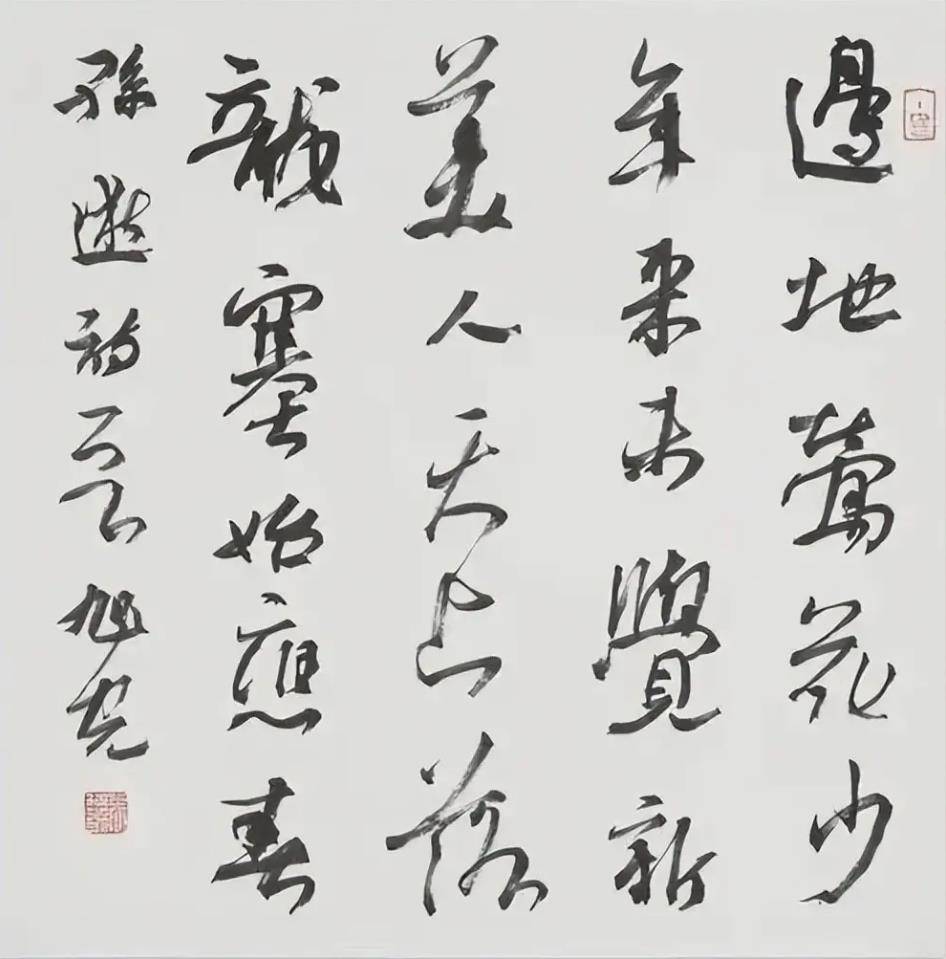 邊地鶯花少
年来未覺新
美人天上落
龍塞始應春
孫逖詩一首旭光